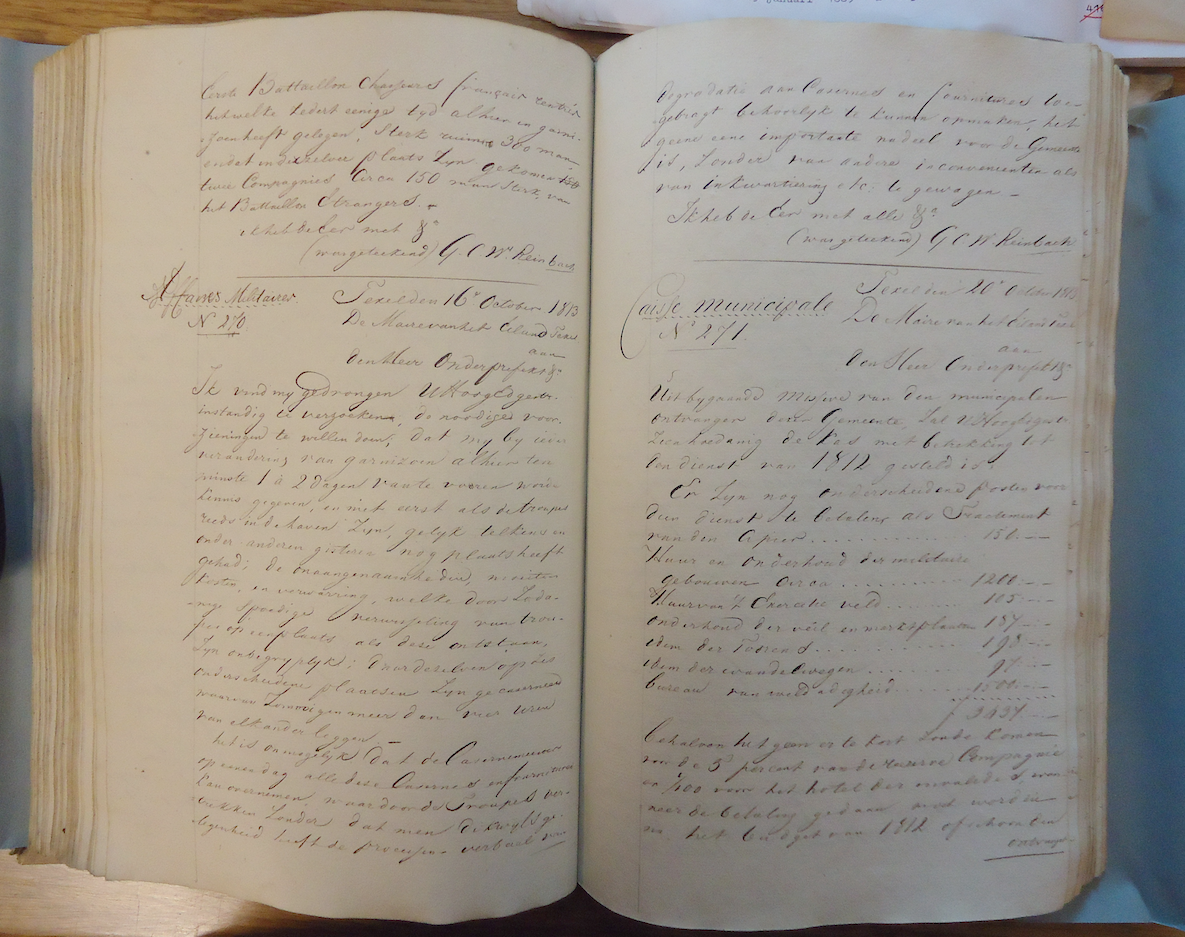 eerste Battaillon Chasseurs français
het welke sedert eenige tyd alhier in garni-
zoen heeft gelegen, sterk ruim 300 man
en det in deszelve plaats zyn gekomen
twee Compagnies circa 150 man sterk, van
het Battaillon Etrangers. -
ik heb de Eer met &a
(was geteekend) G. C. Wm. Reinbach
Affaires Militaires.
N 270
Texel den 16e October 1813
De Maire van het Eiland Texel
aan
den Heer Onderprefekt &a
Ik vind my gedrongen UHoogEdgestr.
instandig te verzoeken, de noodige voor-
zieningen te willen doen, dat my by iedere
verandering van garnizoen alhier ten
minste 1 à 2 dagen van te voren worde
kennis gegeven, en niet eerst als de troupes
reeds in de haven zyn, gelyk telkens en
onder anderen gisteren nog plaats heeft
gehad; de onaangenaamheden, moeiten
kosten, en verwarring, welke door zoda-
nige spoedige verwisseling van trou-
pes op een plaats als deze ontstaan,
zyn onbegrypelyk; daar dezelven op zes
onderscheidene plaatsen zyn gecaserneerd
waarvan zommigen meer dan vier uren
van elkander leggen. -
het is onmogelyk dat de Caserneerder
op eenen dag alle deze Casernes en fournituren
kan overnemen, waardoor de Troupes ver-
trekken zonder dat men dikwyls ge-
legenheid heeft de processen-verbaal van
degradatie aan Casernes en fournitures toe-
gebragt behoorlyk te kunnen opmaken, het
geene eene importante nadeel voor de Gemeente
is, zonder van andere inconvenienten als
van inkwartiering etc: te gewagen -
Ik heb de Eer met alle &a
(was geteekend) G C W. Reinbach
Caisse municipale
No 271.
Texel den 20e October 1813
De Maire van het Eiland Texel
aan
den Heer Onderprefekt &a
Uit bygaande Missive van den municipalen
ontvanger dezer Gemeente, zal UHoogEdgestr.
zien hoedanig de kas met betrekking tot
den dienst van 1812 gesteld is.
Er zyn nog onderscheidene posten voor
dien dienst te betalen als Tractement
van den Apier . . . . . . . 150. -
Huur en onderhoud der militaire
gebouwen circa . . . . . . . 1200 - -
Huur van 't Exercitie veld . . . . . 105 - -
onderhoud der veil en marktplaatsen 187 - -
idem der Fossens . . . . . . . 198 - -
idem der wandelwegen . . . . . 97 - -
bureau van weldadigheid . . . . . 1500 - -
f 3437 - -
behalven het geen er te kort zoude komen
van de 5 percent van de reserve Compagnie
en 1/100 voor het hotel der invaliden, wan-
neer de betaling gedaan moet worden
het budget van 1812 ofschoon den
ontvang-